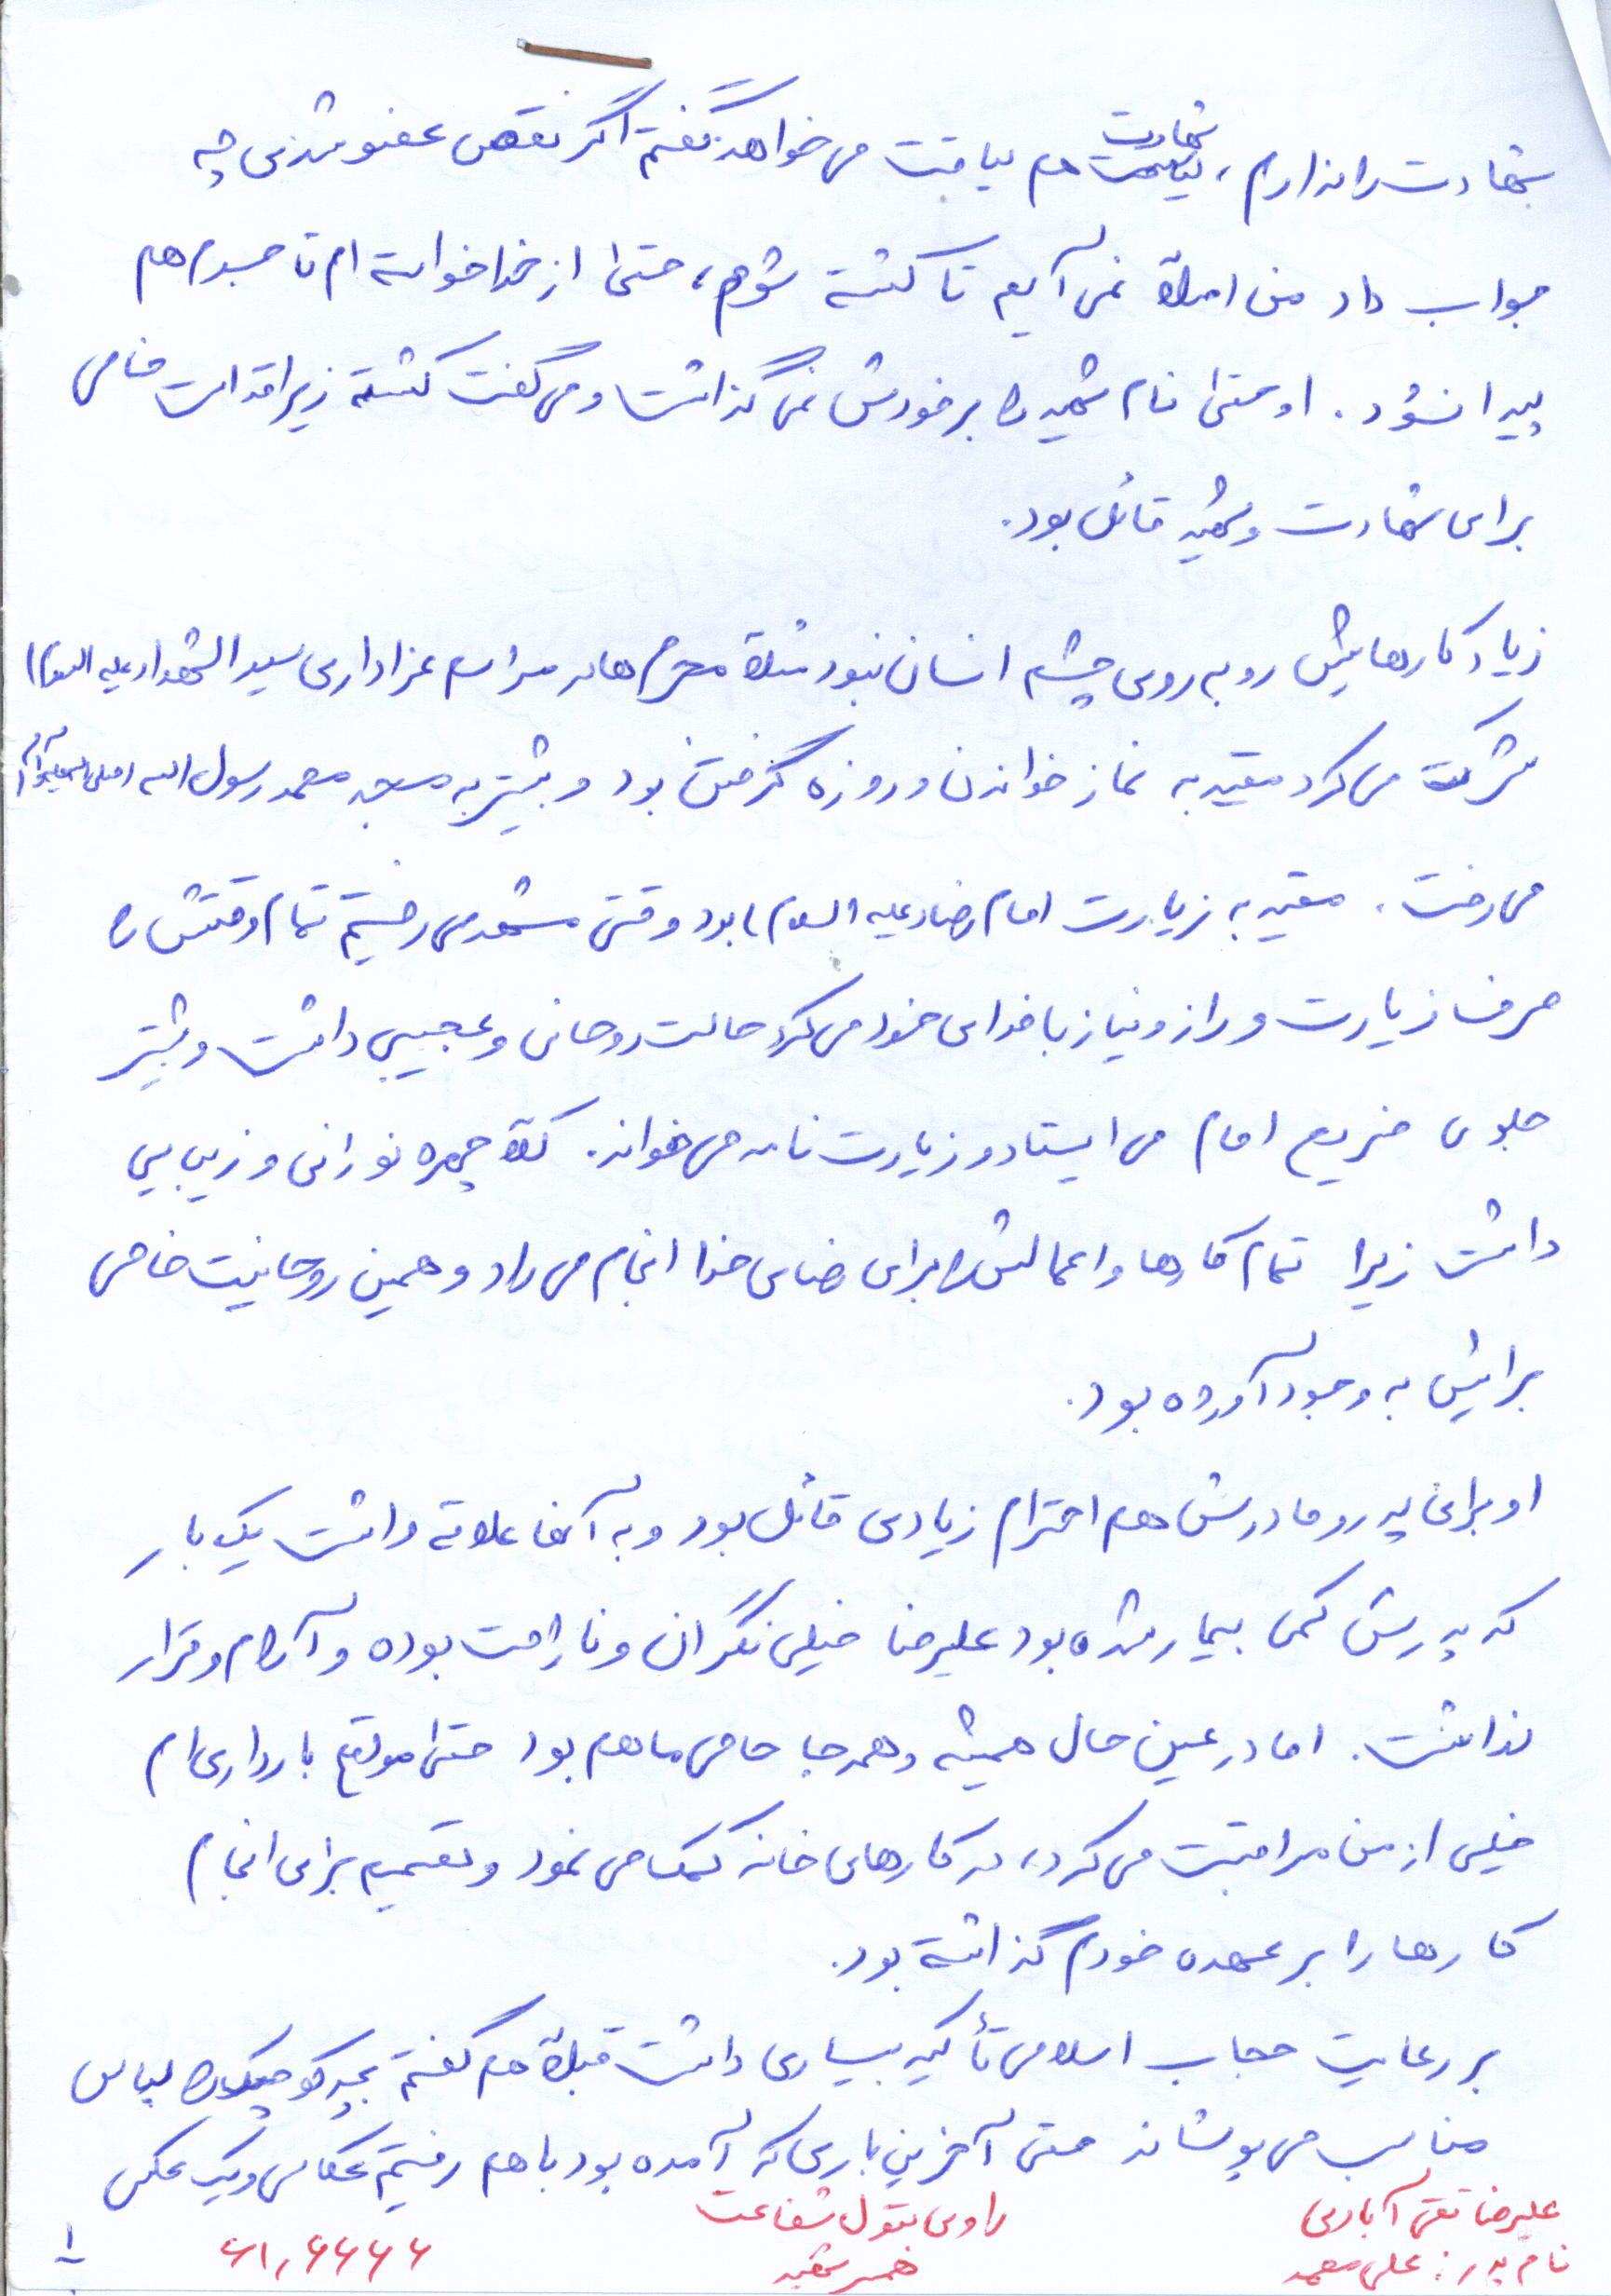 شهادت را ندارم، شهادت هم لیاقت می‌خواهد گفتم اگر نقص عضو شدی چه
جواب داد من اصلاً نمی‌آیم تا کشته شوم، حتی از خدا خواسته‌ام تا جسدم هم
پیدا نشود. او حتی نام شهید را بر خودش نمی‌گذاشت و می‌گفت کشته زیرا قداست خاصی
برای شهادت و شهید قائل بود.
زیاد کارهایش رو به روی چشم انسان نبود مثلاً محرم‌ها در مراسم عزاداری سیدالشهدا (علیه السلام)
شرکت می‌کرد مقید به نماز خواندن و روزه گرفتن بود و بیشتر به مسجد محمد رسول الله
می‌رفت. مقید به زیارت امام رضا (علیه السلام) بود وقتی مشهد می‌رفتیم تمام وقتش را
صرف زیارت و راز و نیاز با خدای خود می‌کرد حالت روحانی و عجیبی داشت و بیشتر
جلوی ضریح امام می‌ایستاد و زیارت نامه می‌خواند. کلاً چهره نورانی و زیبایی
داشت زیرا تمام کارها و اعمالش را برای رضای خدا انجام می‌داد و همین روحانیت خاصی
برایش به وجود آورده بود.
او برای پدر و مادرش هم احترام زیادی قائل بود و به آنها علاقه داشت یک بار
که پدرش کمی بیمار شده بود علیرضا خیلی نگران و ناراحت بوده و آرام و قرار
نداشت. اما در عین حال همیشه و همه جا حامی ما هم بود حتی موقع بارداری‌ام
خیلی از من مراقبت می‌کرد، در کارهای خانه کمک می‌نمود و تصمیم برای انجام
کارها را بر عهده خودم گذاشته بود.
بر رعایت حجاب اسلامی تأکید بسیاری داشت قبلاً هم گفتم بچه کوچک را لباس
مناسب می‌پوشاند حتی آخرین باری که آمده بود با هم رفتیم عکاسی و یک عکس
علیرضا تقی آبادی
راوی بتول شفاعت
نام پدر: علی محمد
همسر شهید
۶۱٫۶۶۶۶
۱